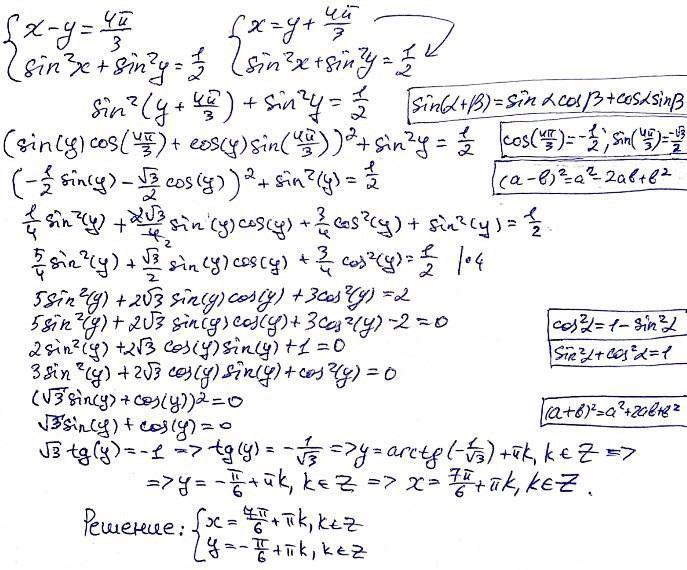 { x - y = 4π/3 { x = y + 4π/3
{ sin²x + sin²y = 1/2 { sin²x + sin²y = 1/2
sin²(y + 4π/3) + sin²y = 1/2 sin(α+β) = sin α cos β + cos α sin β
(sin(y) cos(4π/3) + cos(y) sin(4π/3))² + sin²y = 1/2 cos(4π/3) = -1/2; sin(4π/3) = -√3/2
(-1/2 sin(y) - √3/2 cos(y))² + sin²(y) = 1/2 (a-b)² = a² = 2ab + b²
1/4 sin²(y) + 2√3/4 sin(y) cos(y) + 3/4 cos²(y) + sin²(y) = 1/2
5/4 sin²(y) + √3/2 sin(y) cos(y) + 3/4 cos²(y) = 1/2 |·4
5sin²(y) + 2√3 sin(y) cos(y) + 3cos²(y) = 2
5sin²(y) + 2√3 sin(y) cos(y) + 3cos²(y) - 2 = 0 cos²α = 1 - sin²α
2sin²(y) + 2√3 cos(y) sin(y) + 1 = 0 sin²α + cos²α = 1
3sin²(y) + 2√3 cos(y) sin(y) + cos²(y) = 0
(√3 sin(y) + cos(y))2 = 0 (a+b)² = a² + 2ab + b²
√3 sin(y) + cos(y) = 0
√3 tg(y) = -1 => tg(y) = -1/√3 => y = arctg(-1/√3) + πk, k ∈ Z =>
=> y = -π/6 + πk, k ∈ Z => x = 7π/6 + πk, k ∈ Z.
Решение: { x = 7π/6 + πk, k ∈ Z
{ y = -π/6 + πk, k ∈ Z